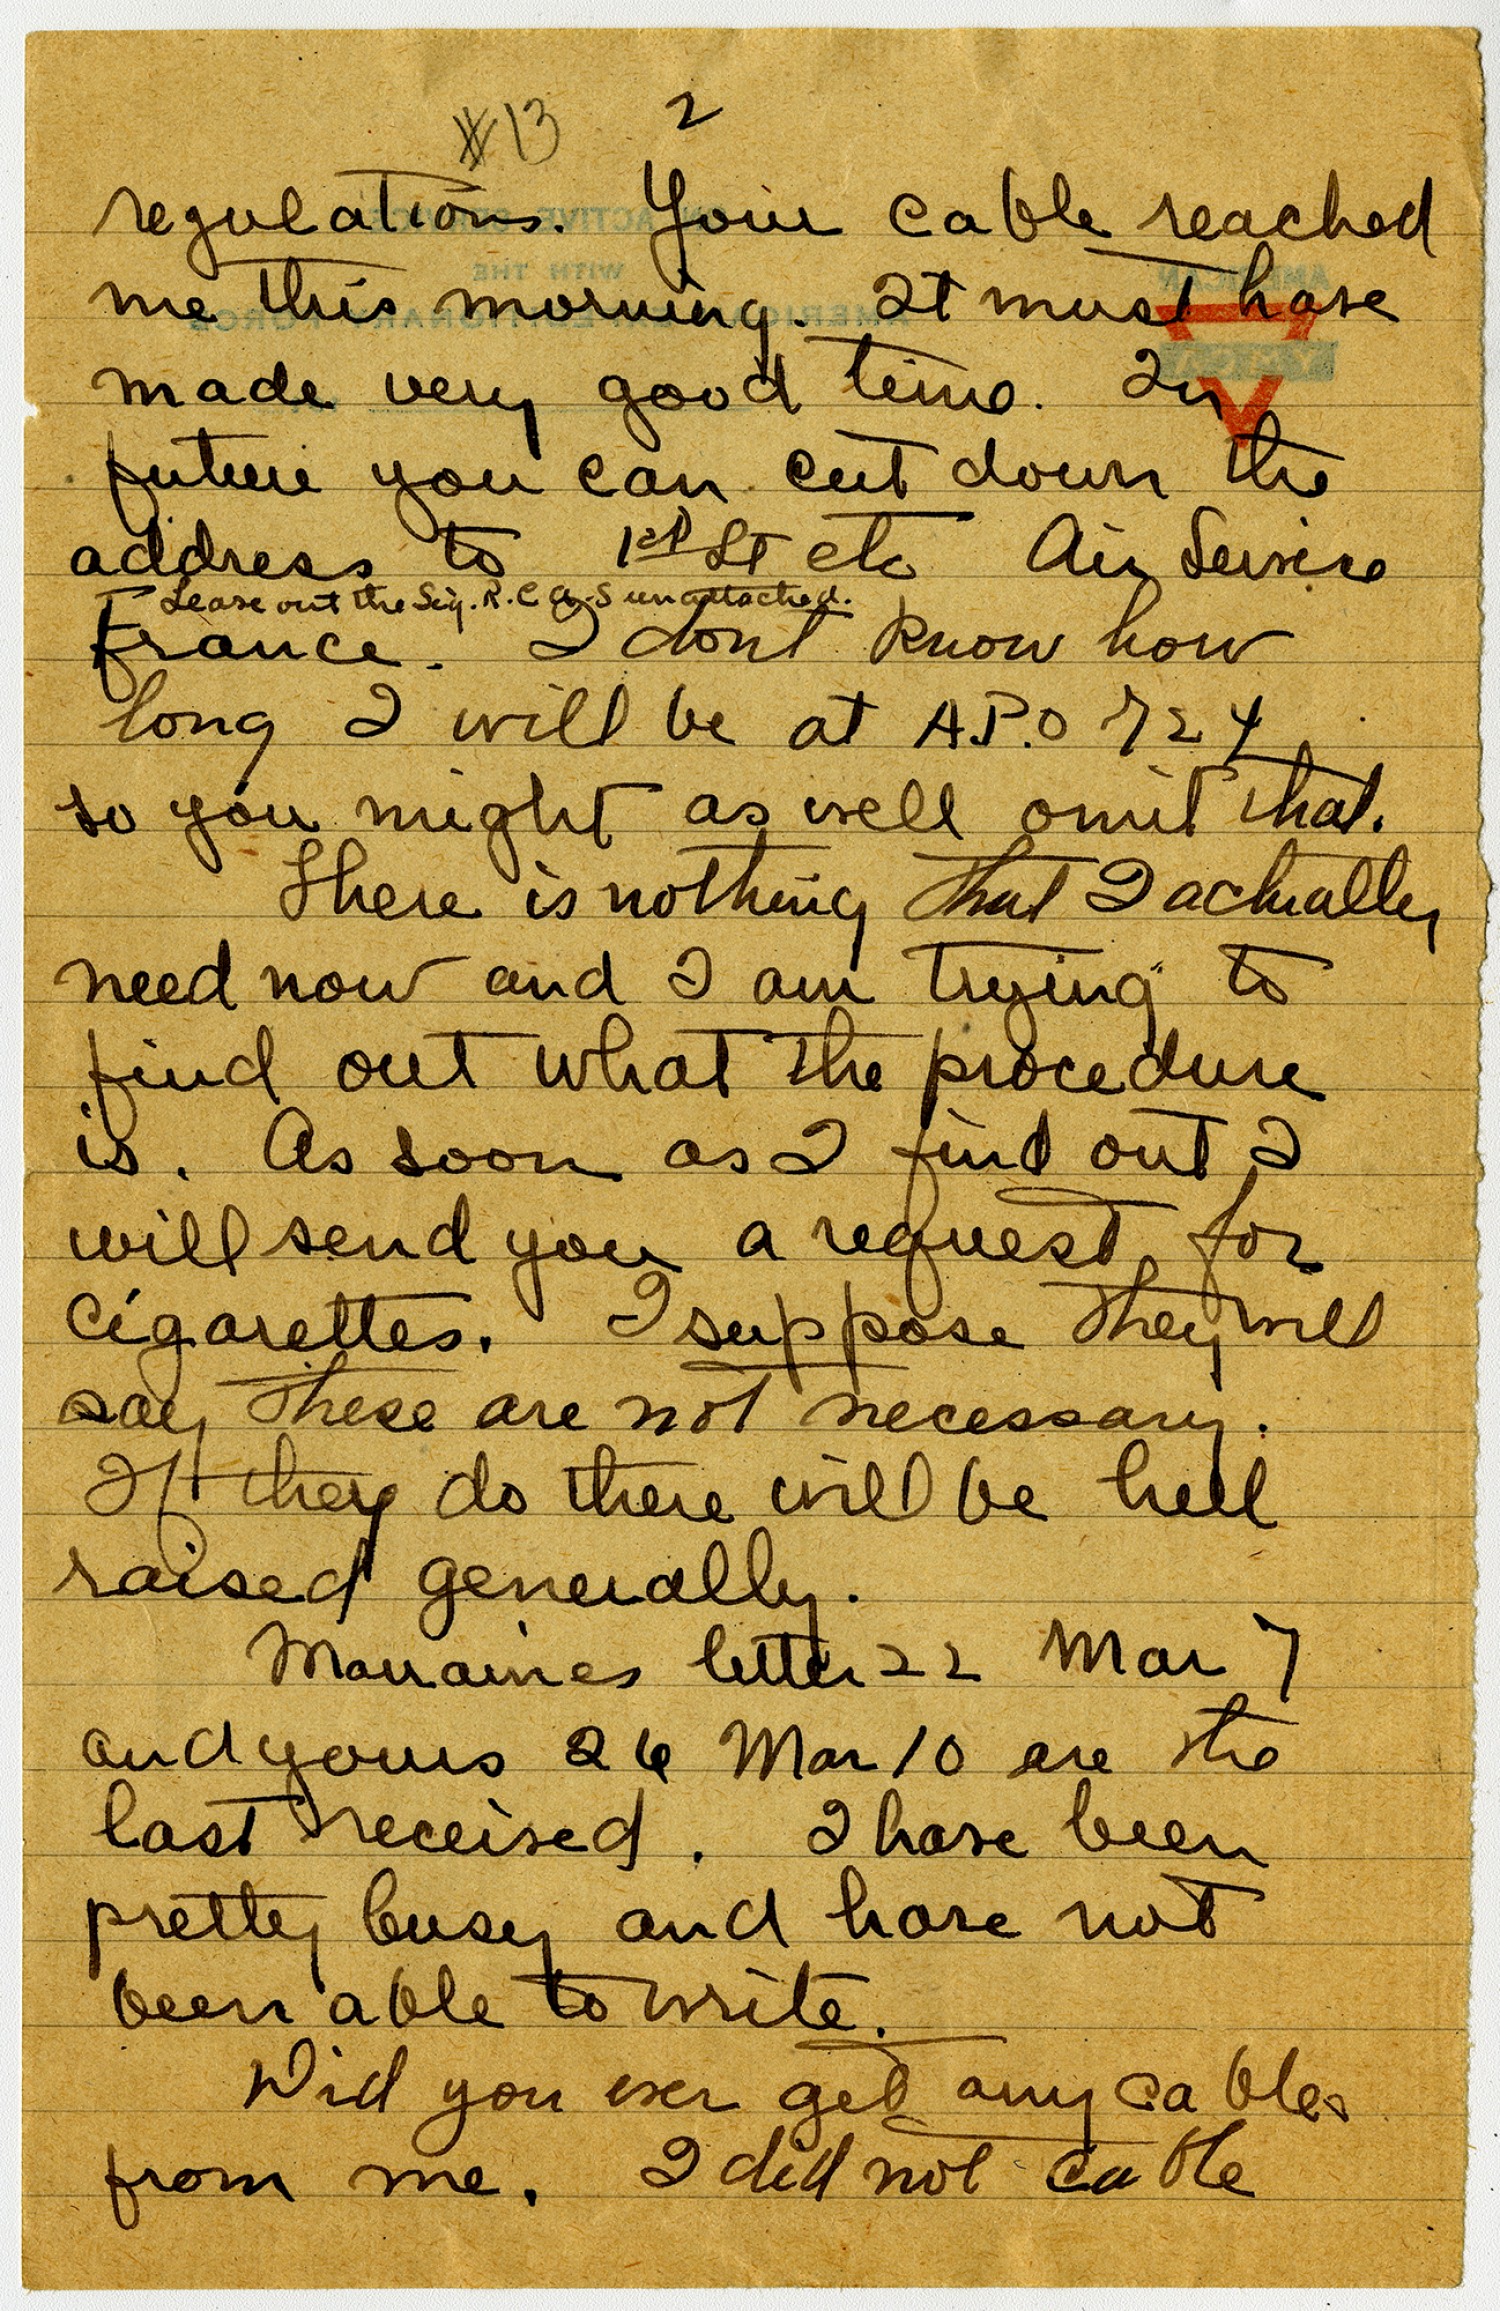 #13 2
regulations. Your cable reached
me this morning. It must have
made very good time. In
future you can cut down the
address to 1st Lt etc Air Service
Leave out the Sig. R.C A.S unattached.
France. I dont know how
long I will be at A.P.O 724
so you might as well omit that.
There is nothing that I actually
need now and I am trying to
find out what the procedure
is. As soon as I find out I
will send you a request for
cigarettes. I suppose they will
say these are not necessary.
If they do there will be hell
raised generally.
Marraines letter 22 Mar 7
and yours 26 Mar 10 are the
last received. I have been
pretty busy and have not
been able to write.
Did you ever get any cables
from me. I did not cable